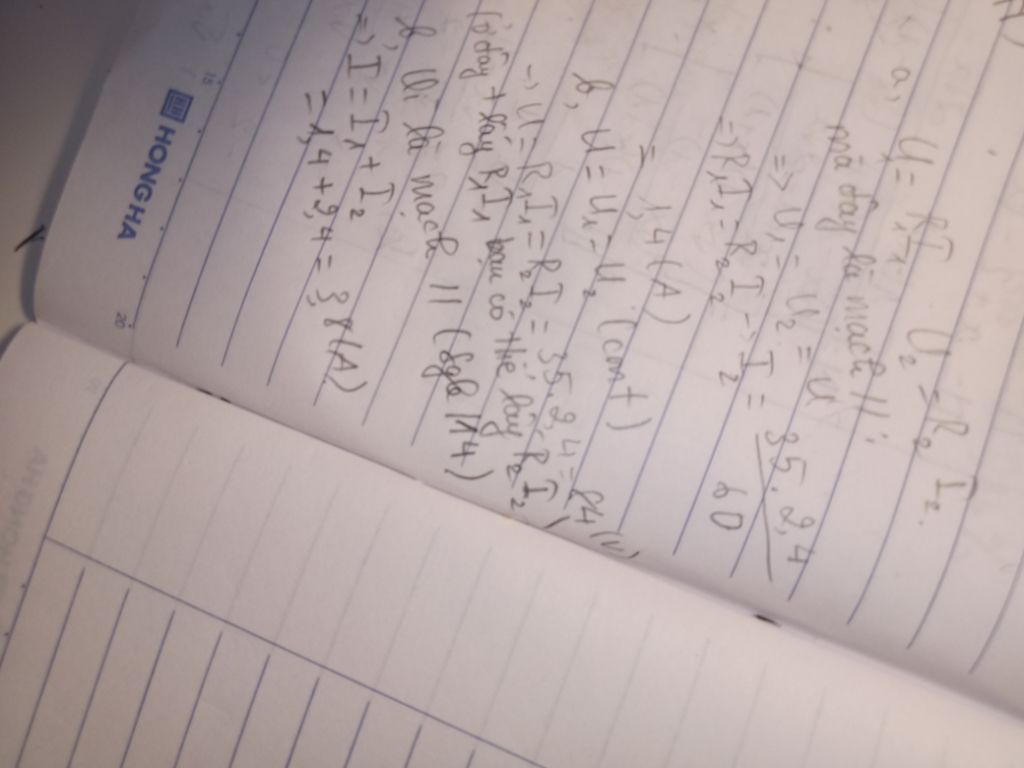 a, U₁ = R₁I₁ U₂ = R₂ I₂.
mà đây là mạch //:
=> U₁ = U₂ = U
=> R₁I₁ = R₂ I₂ -> I₂ = 35.2,4 / 60
= 1,4 (A)
b, U = U₁ = U₂ (cm t)
-> U = R₁I₁ = R₂I₂ = 35.2,4 = 84 (V)
(ở đây + lấy R₁I₁ bạn có thể lấy R₂ I₂)
Vì là mạch // (Sgk/14)
=> I = I₁ + I₂
= 1,4 + 2,4 = 3,8 (A)
HONGHA
18
20